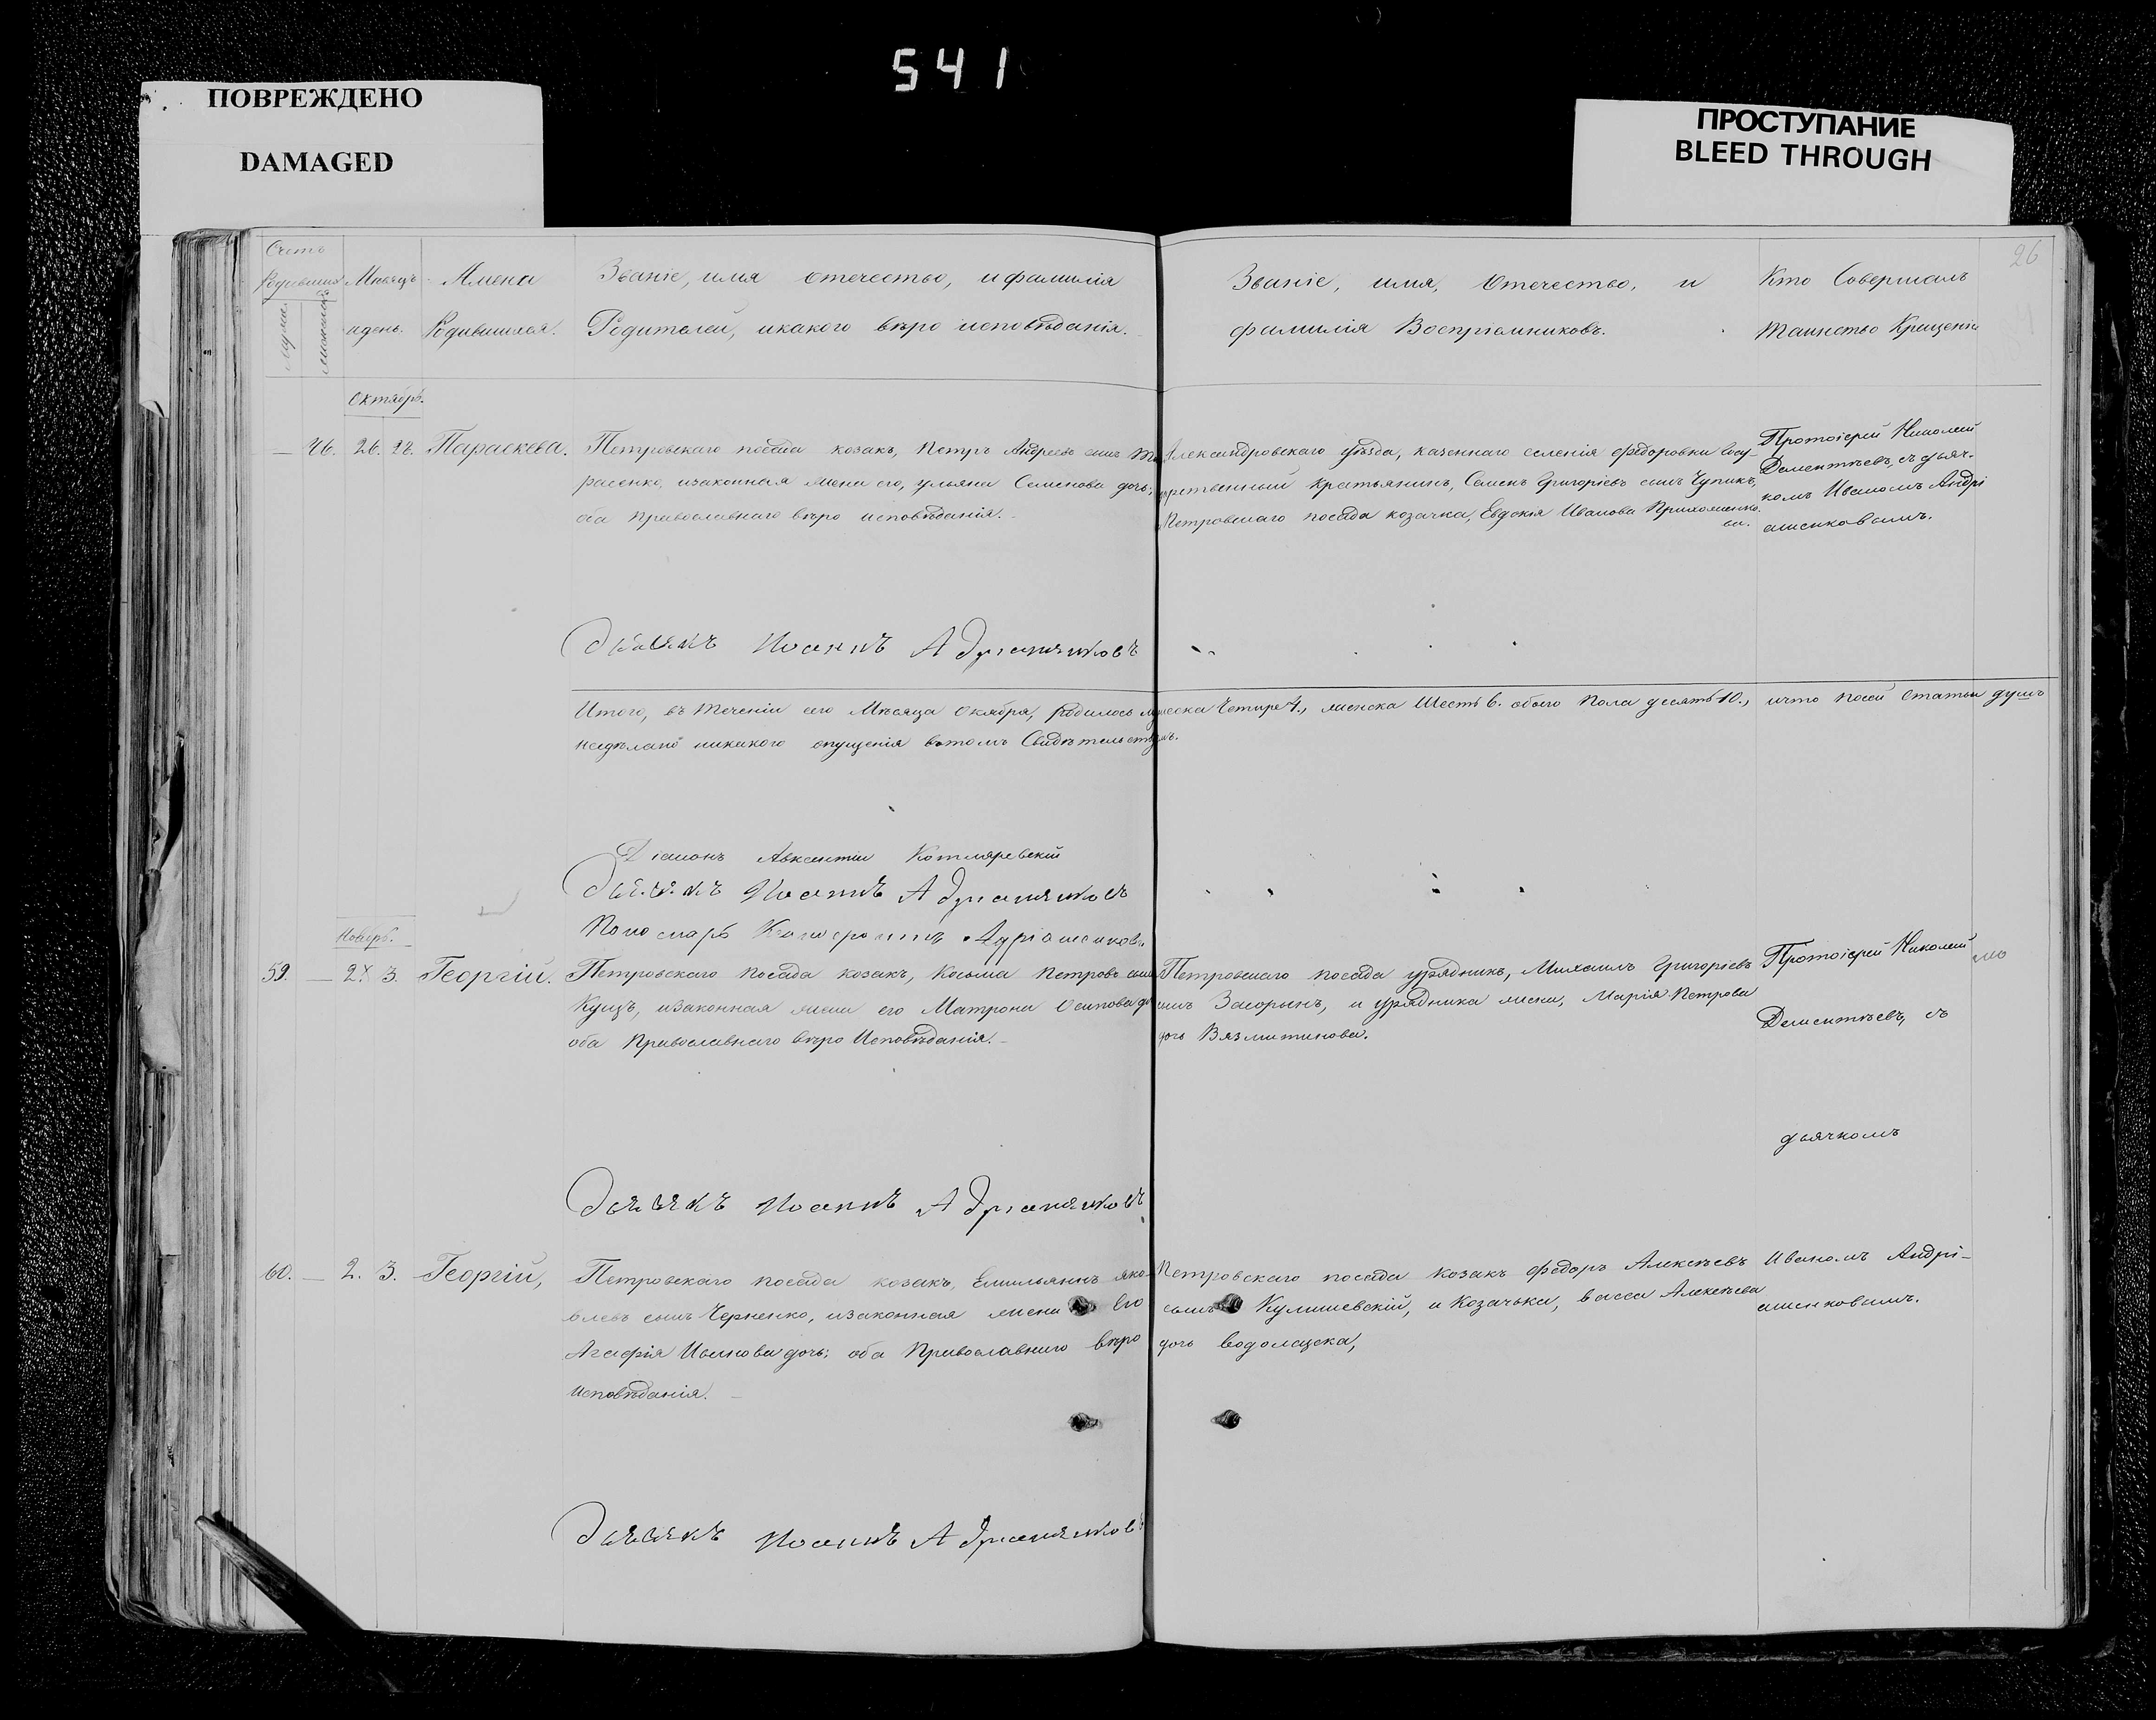 541
ПОВРЕЖДЕНО
DAMAGED
ПРОСТУПАНИЕ
BLEED THROUGH
26
Счетъ
Родившихся
Мѣсяцъ
идень.
Имена
Родившихся.
Званіе, имя отечество, и фамилія
Родителей, икакого вѣро исповѣданія.
Званіе, имя, Отечество, и
фамилія Воспріемниковъ.
Кто Совершалъ
Таинство Крещенія
Октябрь.
46. 26. 28. Параскева.
Петровскаго посада козакъ, Петръ Андреевъ сынъ Та
расенко, изаконная жена его, ульяна Семенова дочь;
оба православнаго вѣро исповѣданія.
Александровскаго уѣзда, казеннаго селенія Федоровки Госу-
дарственный Крестьянинъ, Семенъ Григоріевъ сынъ Чупикъ,
Петровскаго посада козачка, Евдокія Иванова
Протоіерей Николай
Дементѣевъ, съ дьяч-
комъ Иваномъ Андрі
яшенковымъ.
Дьячекъ Иоаннъ Адрианяшковъ
Итого, въ Теченіи сего Мѣсяца Октября, родилось мужеска Четыре 4., женска Шесть 6. обоего пола десять 10., ичто посей Статьи душъ
несдѣлано никакого опущенія вътомъ Свидѣтельствуемъ.
Діаконъ Авксентій Котляревскій
Дьячекъ Иоаннъ Адрианяшковъ
Пономарь
Ноябрь.
59. — 2. 3. Георгій.
Петровскаго посада козакъ, Косьма Петровъ сынъ
Куцъ, изаконная жена его Матрона Осипова до
оба Православнаго вѣро Исповѣданія.
Петровскаго посада урядникъ, Михаилъ Григоріевъ
сынъ Загорынъ, и урядника жена, Марія Петрова
дочь Вязмитинова.
Протоіерей Николай
Дементѣевъ, съ
дьячкомъ
Дьячекъ Иоаннъ Адрианяшковъ
60. — 2. 3. Георгій,
Петровскаго посада козакъ, Емильянъ Яко-
влевъ сынъ Черненко, изаконная жена Его
Агафія Иванова дочь; оба Православнаго вѣро
Исповѣданія.
Петровскаго посада козакъ Федоръ Алексѣевъ
сынъ Кулишевскій, и Козачька, васса Алексѣева
дочь
Иваномъ Андрі-
яшенковымъ.
Дьячекъ Иоаннъ Адрианяшковъ